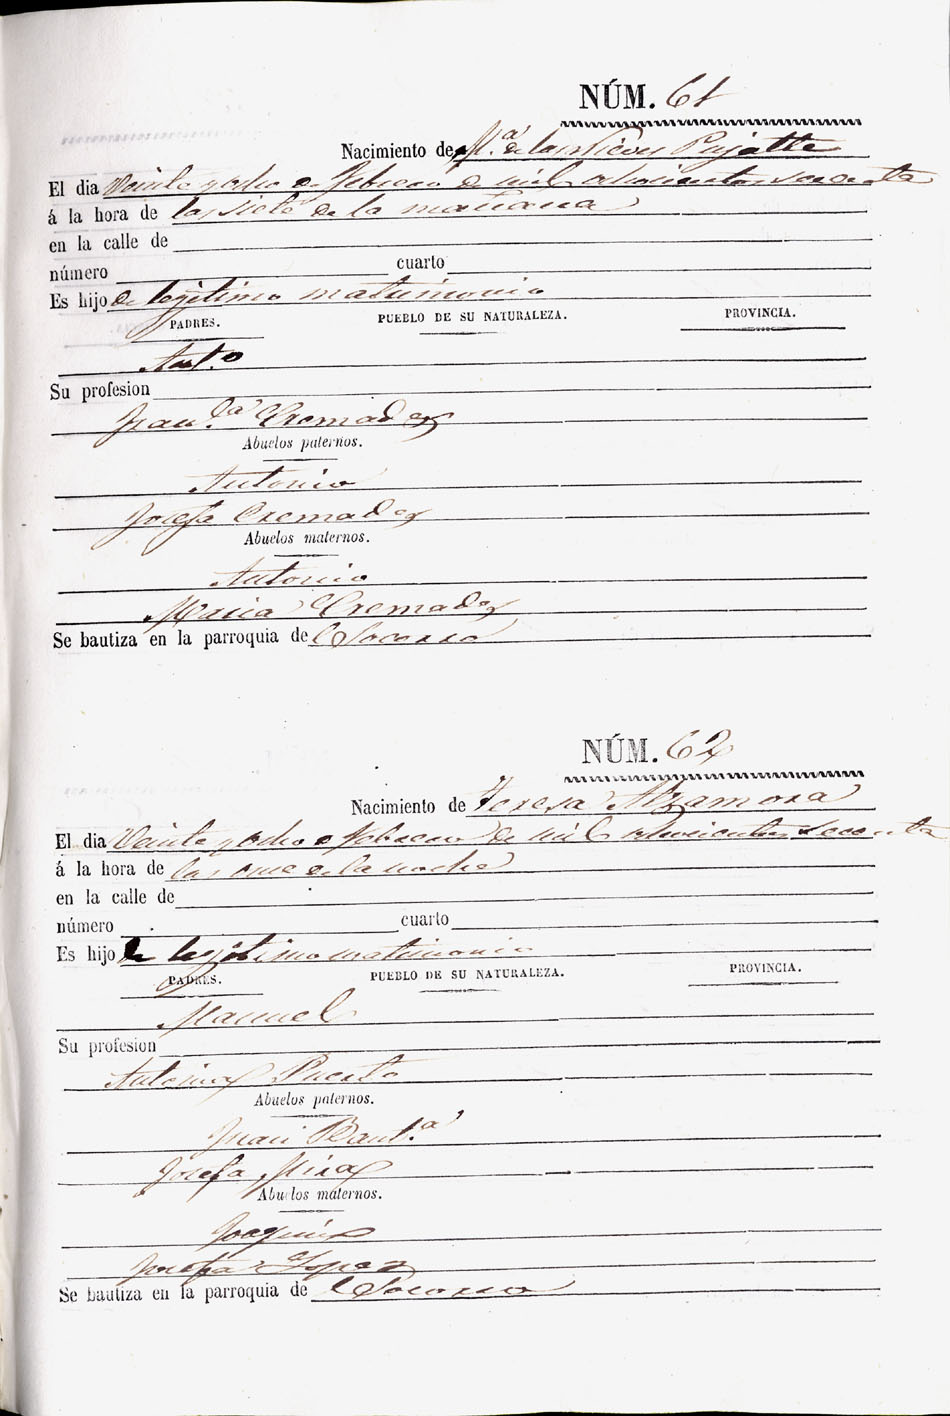 NÚM. 61
Nacimiento de M.ª de las Nieves Pujalte
El dia Veinte y ocho de Febrero de mil ochocientos sesenta
á la hora de las siete de la mañana
en la calle de
número cuarto
Es hijo de legitimo matrimonio
PADRES. PUEBLO DE SU NATURALEZA. PROVINCIA.
Ant.o
Su profesion
Fran.ca Cremades
Abuelos paternos.
Antonio
Josefa Cremades
Abuelos maternos.
Antonio
Maria Cremades
Se bautiza en la parroquia de el Socorro
NÚM. 62
Nacimiento de Teresa Alzamora
El dia Veinte y ocho de Febrero de mil ochocientos sesenta
á la hora de las once de la noche
en la calle de
número cuarto
Es hijo de legitimo matrimonio
PADRES. PUEBLO DE SU NATURALEZA. PROVINCIA.
Manuel
Su profesion
Antonia Puerto
Abuelos paternos.
Juan Baut.a
Josefa Mira
Abuelos maternos.
Joaquin
Josefa Lopez
Se bautiza en la parroquia de el Socorro